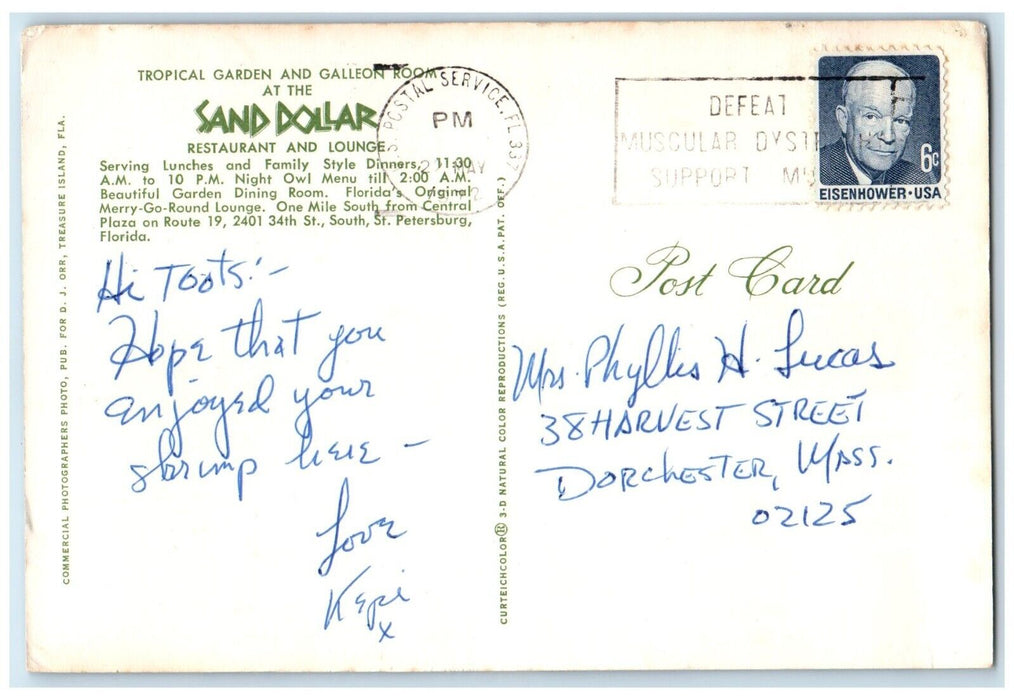 TROPICAL GARDEN AND GALLEON ROOM
AT THE
SAND DOLLAR
RESTAURANT AND LOUNGE
Serving Lunches and Family Style Dinners, 11:30
A.M. to 10 P.M. Night Owl Menu till 2:00 A.M.
Beautiful Garden Dining Room. Florida's Original
Merry-Go-Round Lounge. One Mile South from Central
Plaza on Route 19, 2401 34th St., South, St. Petersburg,
Florida.
COMMERCIAL PHOTOGRAPHERS PHOTO, PUB. FOR D. J. ORR, TREASURE ISLAND, FLA.
Hi Toots:-
Hope that you
enjoyed your
shrimp here -
Love
x
CURTEICHCOLOR® 3-D NATURAL COLOR REPRODUCTIONS (REG. U.S.A. PAT. OFF.)
POSTAL SERVICE, FL 337
PM
MAY
DEFEAT
MUSCULAR DYST
SUPPORT
6c
EISENHOWER·USA
Post Card
Mrs. Phyllis H. Lucas
38 HARVEST STREET
DORCHESTER, MASS.
02125